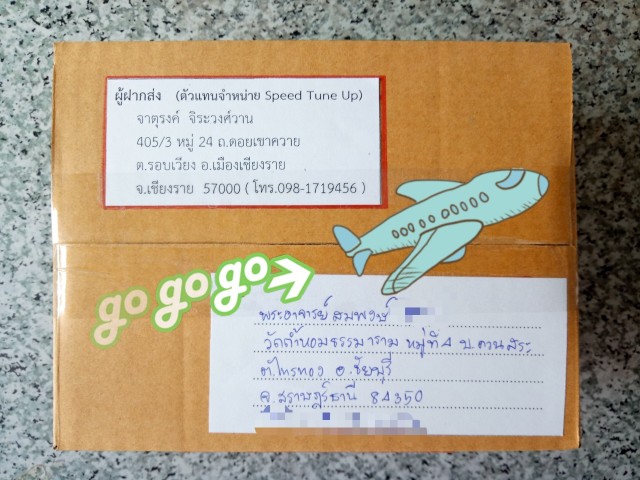 ผู้ฝากส่ง (ตัวแทนจำหน่าย Speed Tune Up)
จาตุรงค์ จิระวงศ์วาน
405/3 หมู่ 24 ถ.ดอยเขาควาย
ต.รอบเวียง อ.เมืองเชียงราย
จ.เชียงราย 57000 ( โทร.098-1719456 )
go go go
พระอาจารย์ สมพงษ์
วัดถ้ำหอมธรรมาราม หมู่ที่ 4 บ.ควนสระ
ต.ไทรทอง อ.ชัยบุรี
จ.สุราษฎร์ธานี 84350